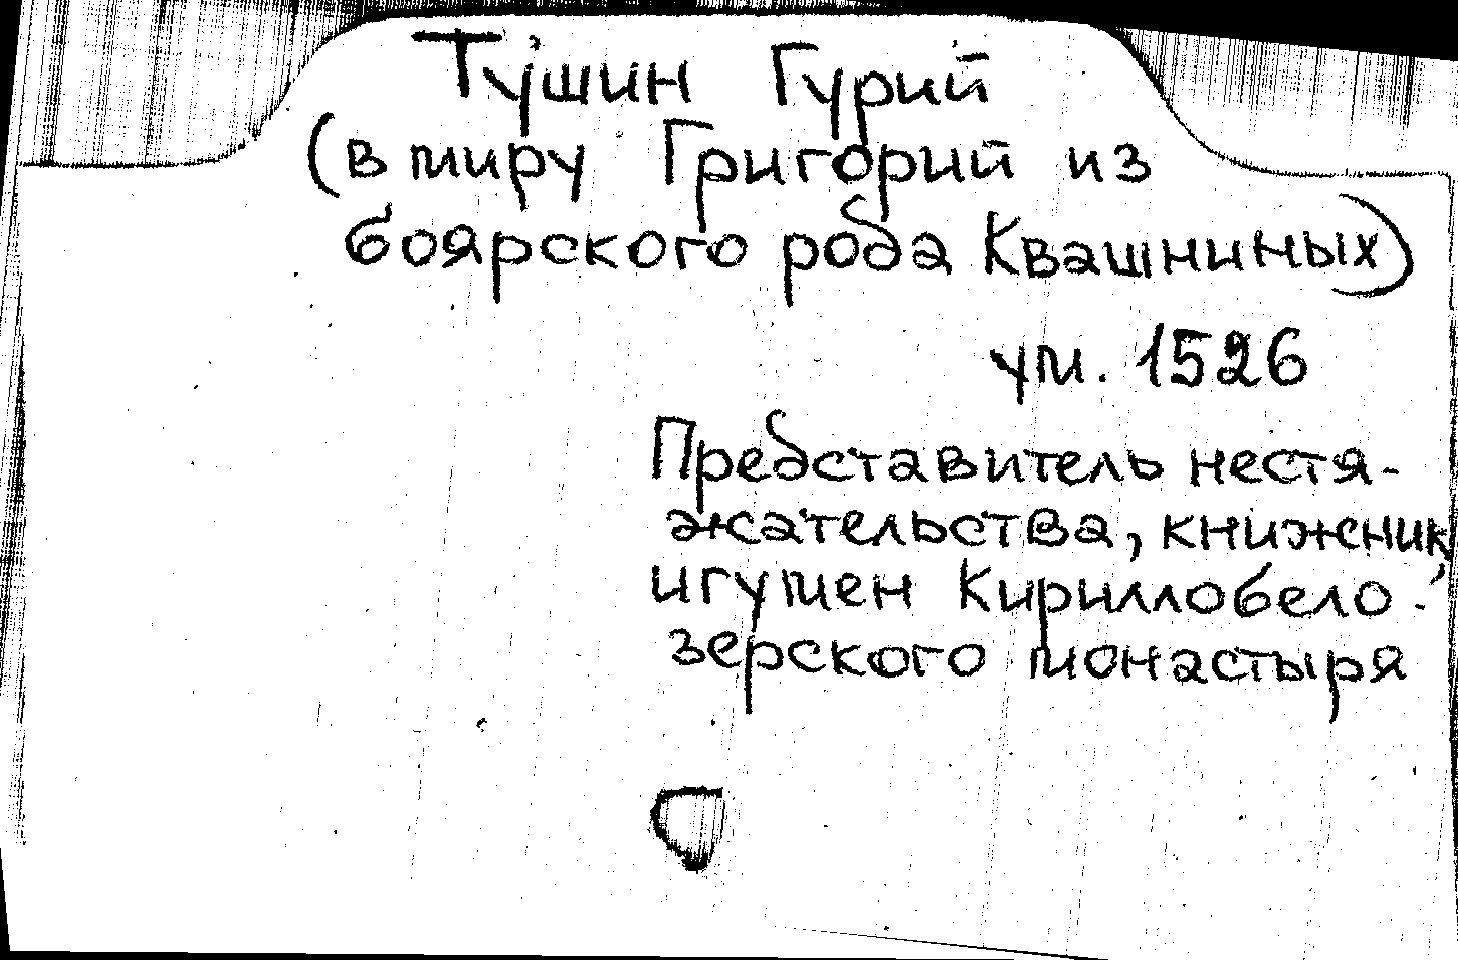 Тушин Гурий
(в миру Григорий из
боярского рода Квашниных)
ум. 1526
Представитель нестя-
жательства, книжник,
игумен Кириллобело-
зерского монастыря